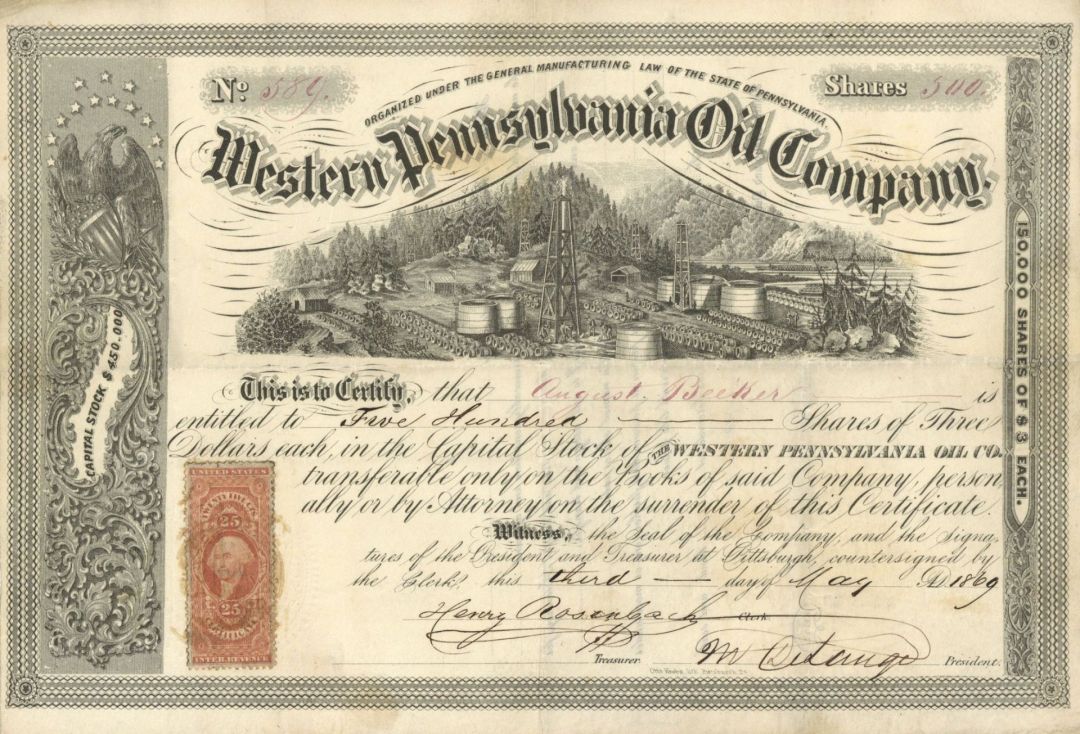 No 589.
ORGANIZED UNDER THE GENERAL MANUFACTURING LAW OF THE STATE OF PENNSYLVANIA.
Shares 500.
Western Pennsylvania Oil Company.
CAPITAL STOCK $450.000
150.000 SHARES OF $3 EACH.
This is to Certify, that August Becker is
entitled to Five Hundred Shares of Three
Dollars each, in the Capital Stock of THE WESTERN PENNSYLVANIA OIL CO.
transferable only on the Books of said Company, person
ally or by Attorney on the surrender of this Certificate.
Witness, the Seal of the Company, and the Signa-
tures of the President and Treasurer at Pittsburgh, countersigned by
the Clerk, this third day of May AD 1869
Henry Rosenbach Clerk
Treasurer President.
UNITED STATES
25
25
CERTIFICATE
INTER. REVENUE